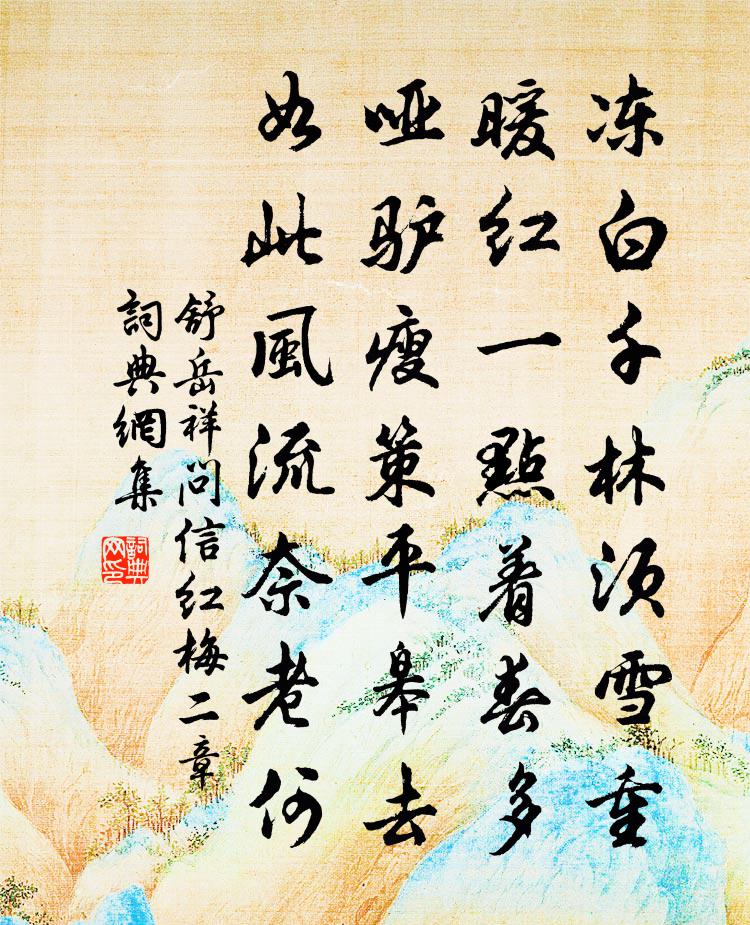 冻白千林须雪重
暖红一點着春多
哑驴瘦策平皋去
如此風流奈老何
舒岳祥问信红梅二章
詞典網集
詞典网印